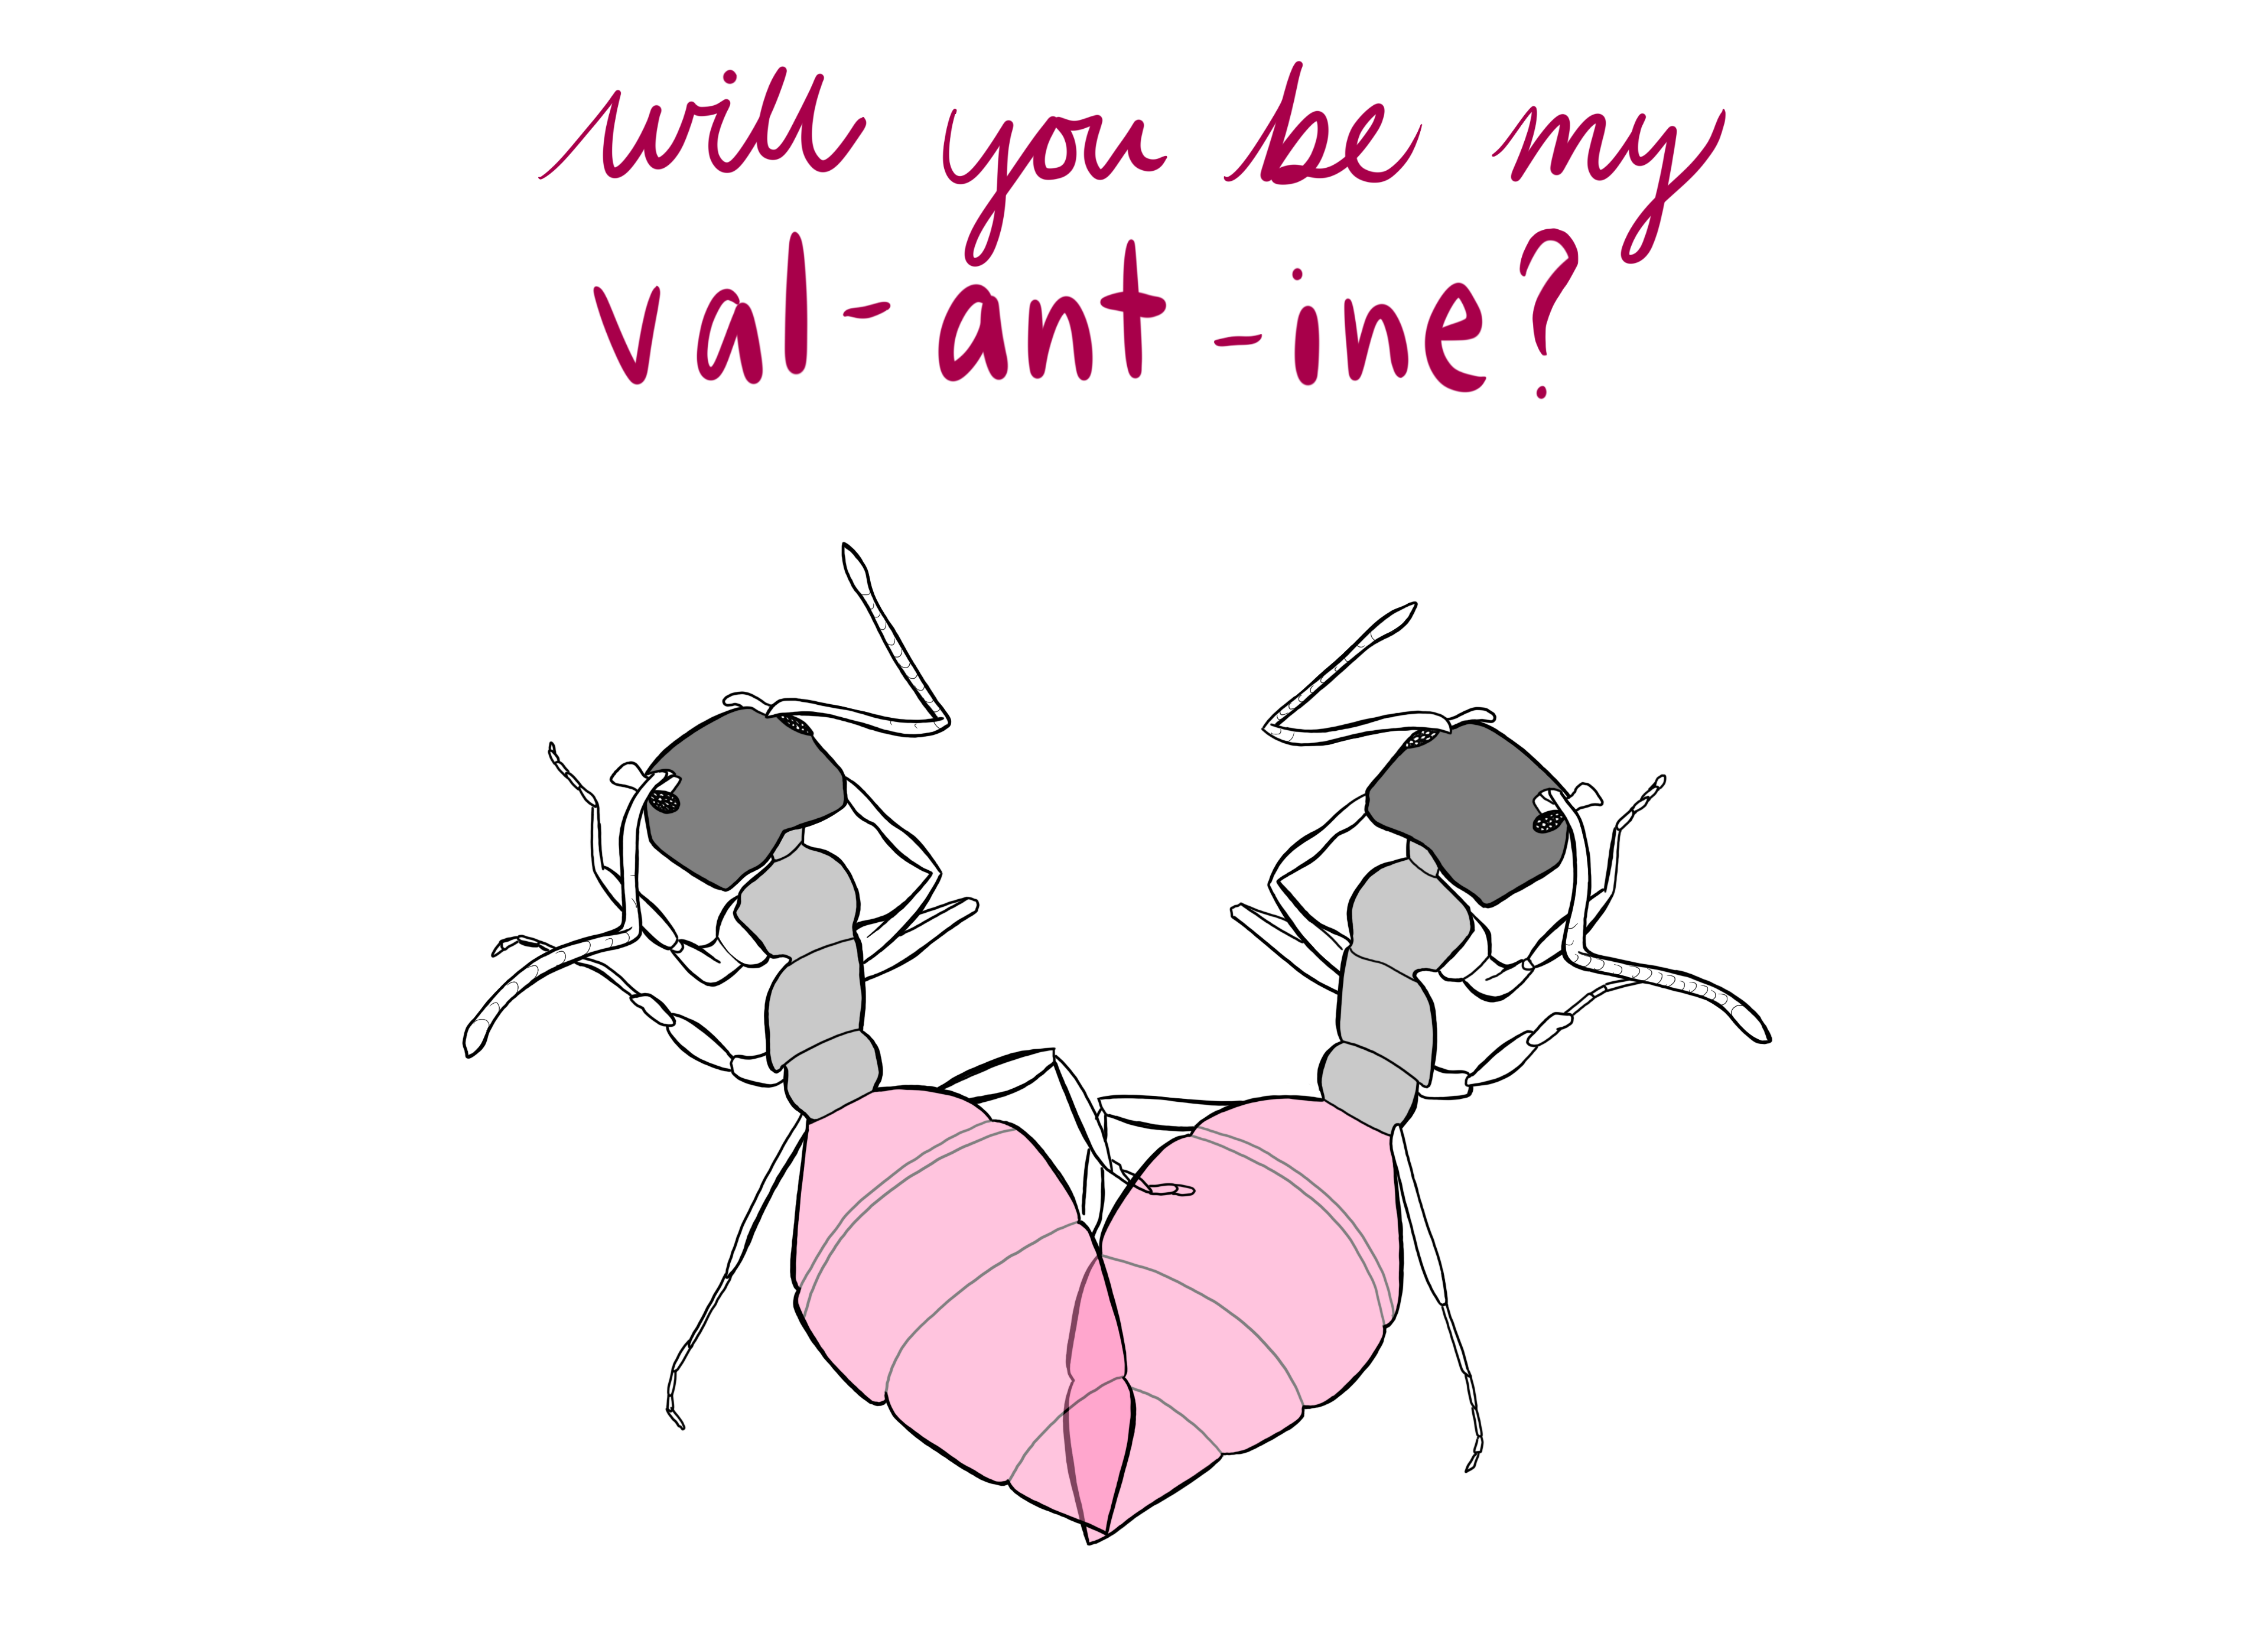 will you be my
val-ant-ine?